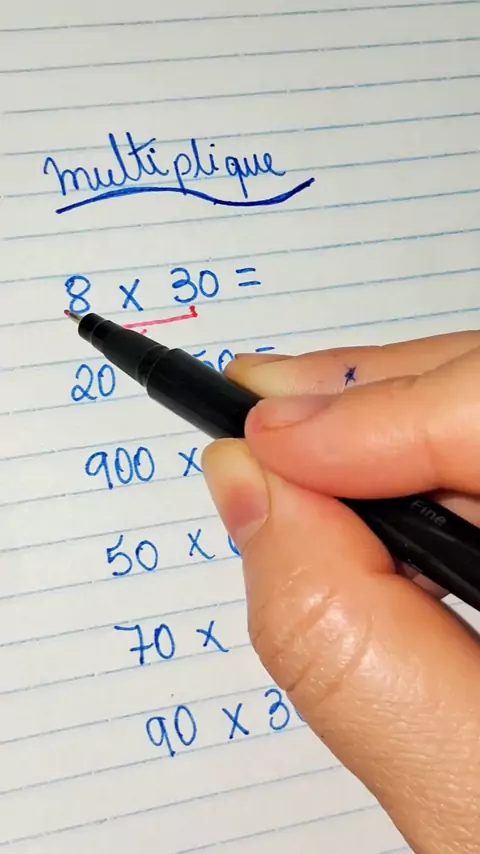 multiplique
8 x 30 =
20
900 x
50 x
70 x
90 x
Fine